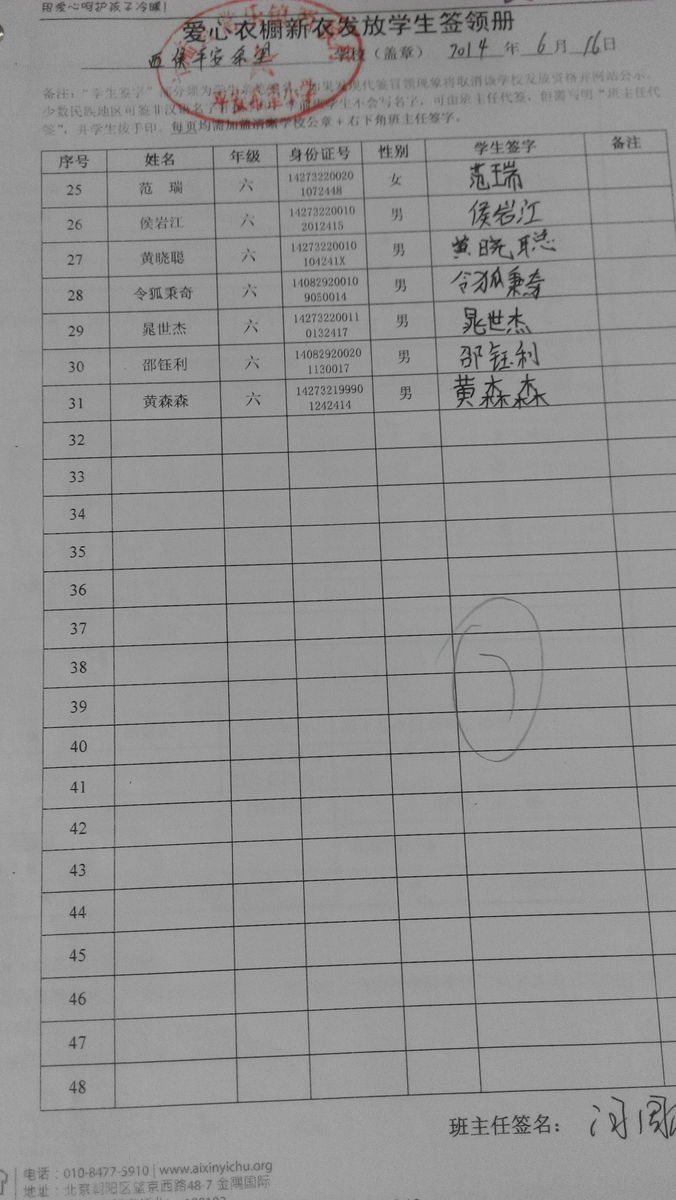 用爱心呵护孩子冷暖!
爱心衣橱新衣发放学生签领册
西侯平安希望 学校（盖章） 2014 年 6 月 16 日
平安希望小学
少数民族地区可签非汉语名字
签”，并学生按手印。每页均需加盖清晰学校公章+右下角班主任签字。
序号 姓名 年级 身份证号 性别 学生签字 备注
25 范 瑞 六 142732200201072448 女 范瑞
26 侯岩江 六 142732200102012415 男 侯岩江
27 黄晓聪 六 14273220010104241X 男 黄晓聪
28 令狐秉奇 六 140829200109050014 男 令狐秉奇
29 晁世杰 六 142732200110132417 男 晁世杰
30 邵钰利 六 140829200201130017 男 邵钰利
31 黄森森 六 142732199901242414 男 黄森森
32
33
34
35
36
37
38
39
40
41
42
43
44
45
46
47
48
班主任签名：
电话：010-8477-5910 | www.aixinyichu.org
地址：北京朝阳区望京西路48-7 金隅国际